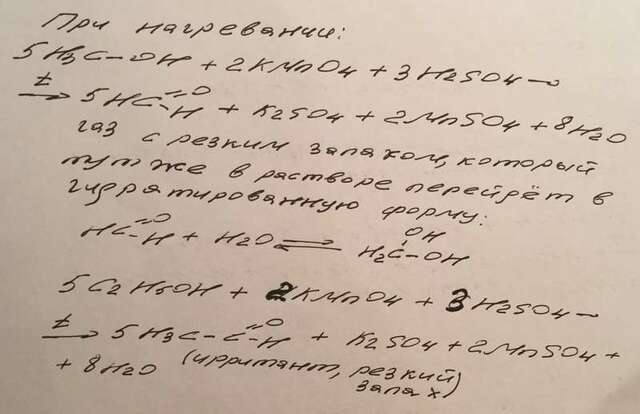 При нагревании:
5H3C-OH + 2KMnO4 + 3H2SO4 →
t → 5HC=O-H + K2SO4 + 2MnSO4 + 8H2O
газ с резким запахом, который
тут же в растворе перейдёт в
гидратированную форму:
HC=O-H + H2O ⇄ H2C-OH OH
5C2H5OH + 2KMnO4 + 3H2SO4 →
t → 5H3C-C=O-H + K2SO4 + 2MnSO4 +
+ 8H2O (ирритант, резкий
запах)